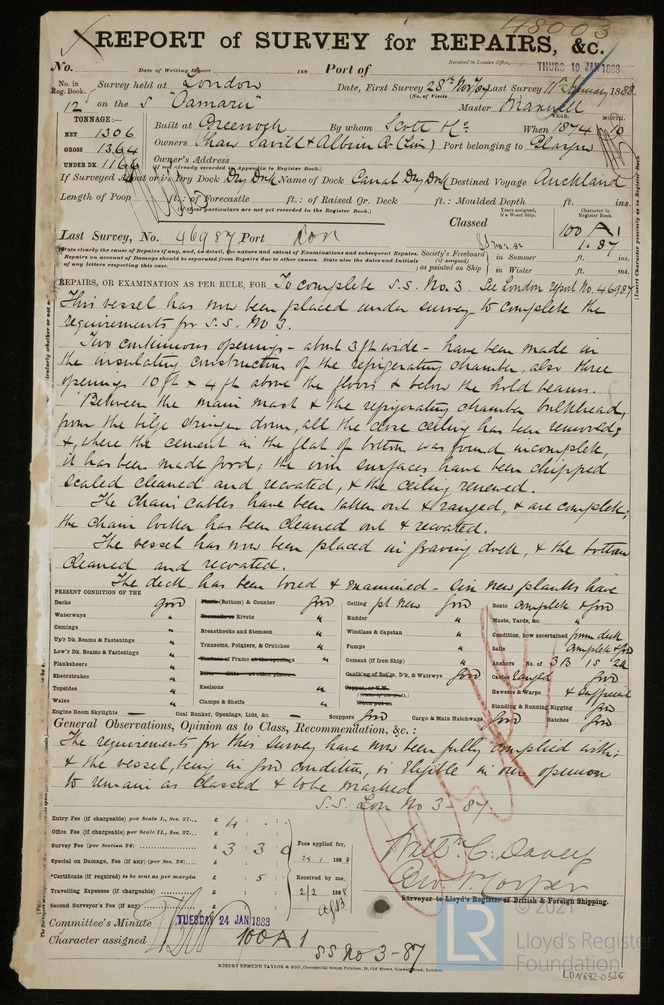 48003
REPORT of SURVEY for REPAIRS, &c.
Received in London Office, THURS 19 JAN 1888
No. Date of Writing Report 188 Port of
No. in Reg. Book. Survey held at London Date, First Survey 28th Nov/87 Last Survey 11th January 1888
(No. of Visits
12 on the S "Tamaru" Master Maxwell
TONNAGE:— YEAR. MONTH.
NET 1306 Built at Greenock By whom Scott & Co When 1874 10
GROSS 1364 Owners Shaw Savill & Albion Co (Lim) Port belonging to Glasgow
UNDER DK. 1166 Owner's Address
(if not already recorded in Appendix to Register Book.)
If Surveyed Afloat or in Dry Dock Dry Dock Name of Dock Canal Dry Dock Destined Voyage Auckland
Length of Poop ft.: of Forecastle ft.: of Raised Qr. Deck ft.: Moulded Depth ft. ins.
(If these particulars are not yet recorded in the Register Book.)
Classed Years assigned, if a Wood Ship. Character in Register Book.
100 A 1
1.87
Last Survey, No. 46987 Port Lon
State clearly the cause of Repairs if any, and, in detail, the nature and extent of Examinations and subsequent Repairs. Society's Freeboard in Summer ft. ins.
Repairs on account of Damage should be separated from Repairs due to other causes. State also the dates and Initials (if assigned)
of any letters respecting this case. as painted on Ship in Winter ft. ins.
REPAIRS, OR EXAMINATION AS PER RULE, FOR To complete S.S. No. 3. See London report No. 46987
This vessel has now been placed under survey to complete the
requirements for S.S. No 3.
Two continuous openings - about 3 ft wide - have been made in
the insulating construction of the refrigerating chamber, also three
openings 10 ft & 4 ft above the floors & below the hold beams.
Between the main mast & the refrigerating chamber bulkhead,
from the bilge stringer down, all the close ceiling has been removed;
&, where the cement in the flat of bottom was found incomplete,
it has been made good; the iron surfaces have been chipped
scaled cleaned and recoated, & the ceiling renewed.
The chain cables have been taken out & ranged, & are complete;
the chain locker has been cleaned out & recoated.
The vessel has now been placed in graving dock, & the bottom
cleaned and recoated.
The deck has been bored & examined - six new planks have
PRESENT CONDITION OF THE
Decks good (Bottom) & Counter good Ceiling pt new good Boats complete & good
Waterways " Rivets " Rudder " Masts, Yards, &c. "
Comings " Breasthooks and Stemson " Windlass & Capstan " Condition, how ascertained from deck
Up'r Dk. Beams & Fastenings " Transoms, Pointers, & Crutches " Pumps " Sails complete & good
Low'r Dk. Beams & Fastenings " Timbers of Frame at the openings " Cement (if Iron Ship) " Anchors No. of 3B 1S 2K
Planksheers " Caulking of D'k, & Watrwys good Cables ranged good
Sheerstrakes " Keelsons " Hawsers & Warps & sufficient
Topsides " Clamps & Shelfs " Standing & Running Rigging good
Wales "
Engine Room Skylights — Coal Bunker, Openings, Lids, &c. — Scuppers good Cargo & Main Hatchways good Hatches good
General Observations, Opinion as to Class, Recommendation, &c. :
The requirements for this Survey have now been fully complied with;
& the vessel, being in good condition, is eligible in our opinion
to remain as classed & to be marked
S.S. Lon No 3 - 87
Entry Fee (if chargeable) per Scale I., Sec. 27... £ 4
Office Fee (if chargeable) per Scale II., Sec. 27... £
Survey Fee (per Section 28) £ 3 3 0
Special on Damage, Fee (if any) (per Sec. 28) £
*Certificate (if required) to be sent as per margin £ 5
Travelling Expenses (if chargeable) £
Second Surveyor's Fee (if any) £
Fees applied for, 25/1 1888
Received by me, 2/2 1888
Surveyor to Lloyd's Register of British & Foreign Shipping.
Committee's Minute TUESDAY 24 JAN 1888
Character assigned 100 A 1
S.S. No 3 - 87
ROBERT EDMUND TAYLOR & SON, Commercial Steam Printers, 19, Old Street, London.
© 2021
LR
Lloyd's Register
Foundation
LON682-0336